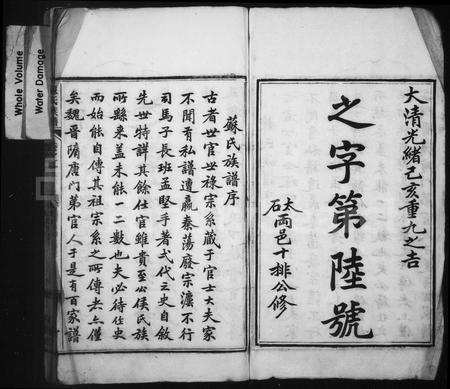 Whole Volume
Water Damage
大清光緒己亥重九之吉
之字第陸號
太
石
両邑十排公修
蘇氏族譜序
古者世官世祿宗系藏于官士大夫家
不聞有私譜遭嬴秦蕩廢宗灋不行
司馬子長班孟堅手著弌代之史自敘
先世特詳其餘仕官雖貴至公侯氏族
所縣來盖未能一二數也夫必待仕史
而始能自傳其祖宗系之所傳者亦僅
矣魏晋隋唐門第官人于是有百家譜